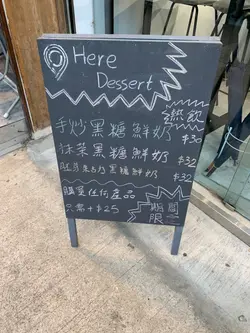 Here
Dessert
熱飲
手炒黑糖鮮奶 $30
抹茶黑糖鮮奶 $32
黑糖鮮奶 $32
購買任何產品
只需+$25
期間
限定